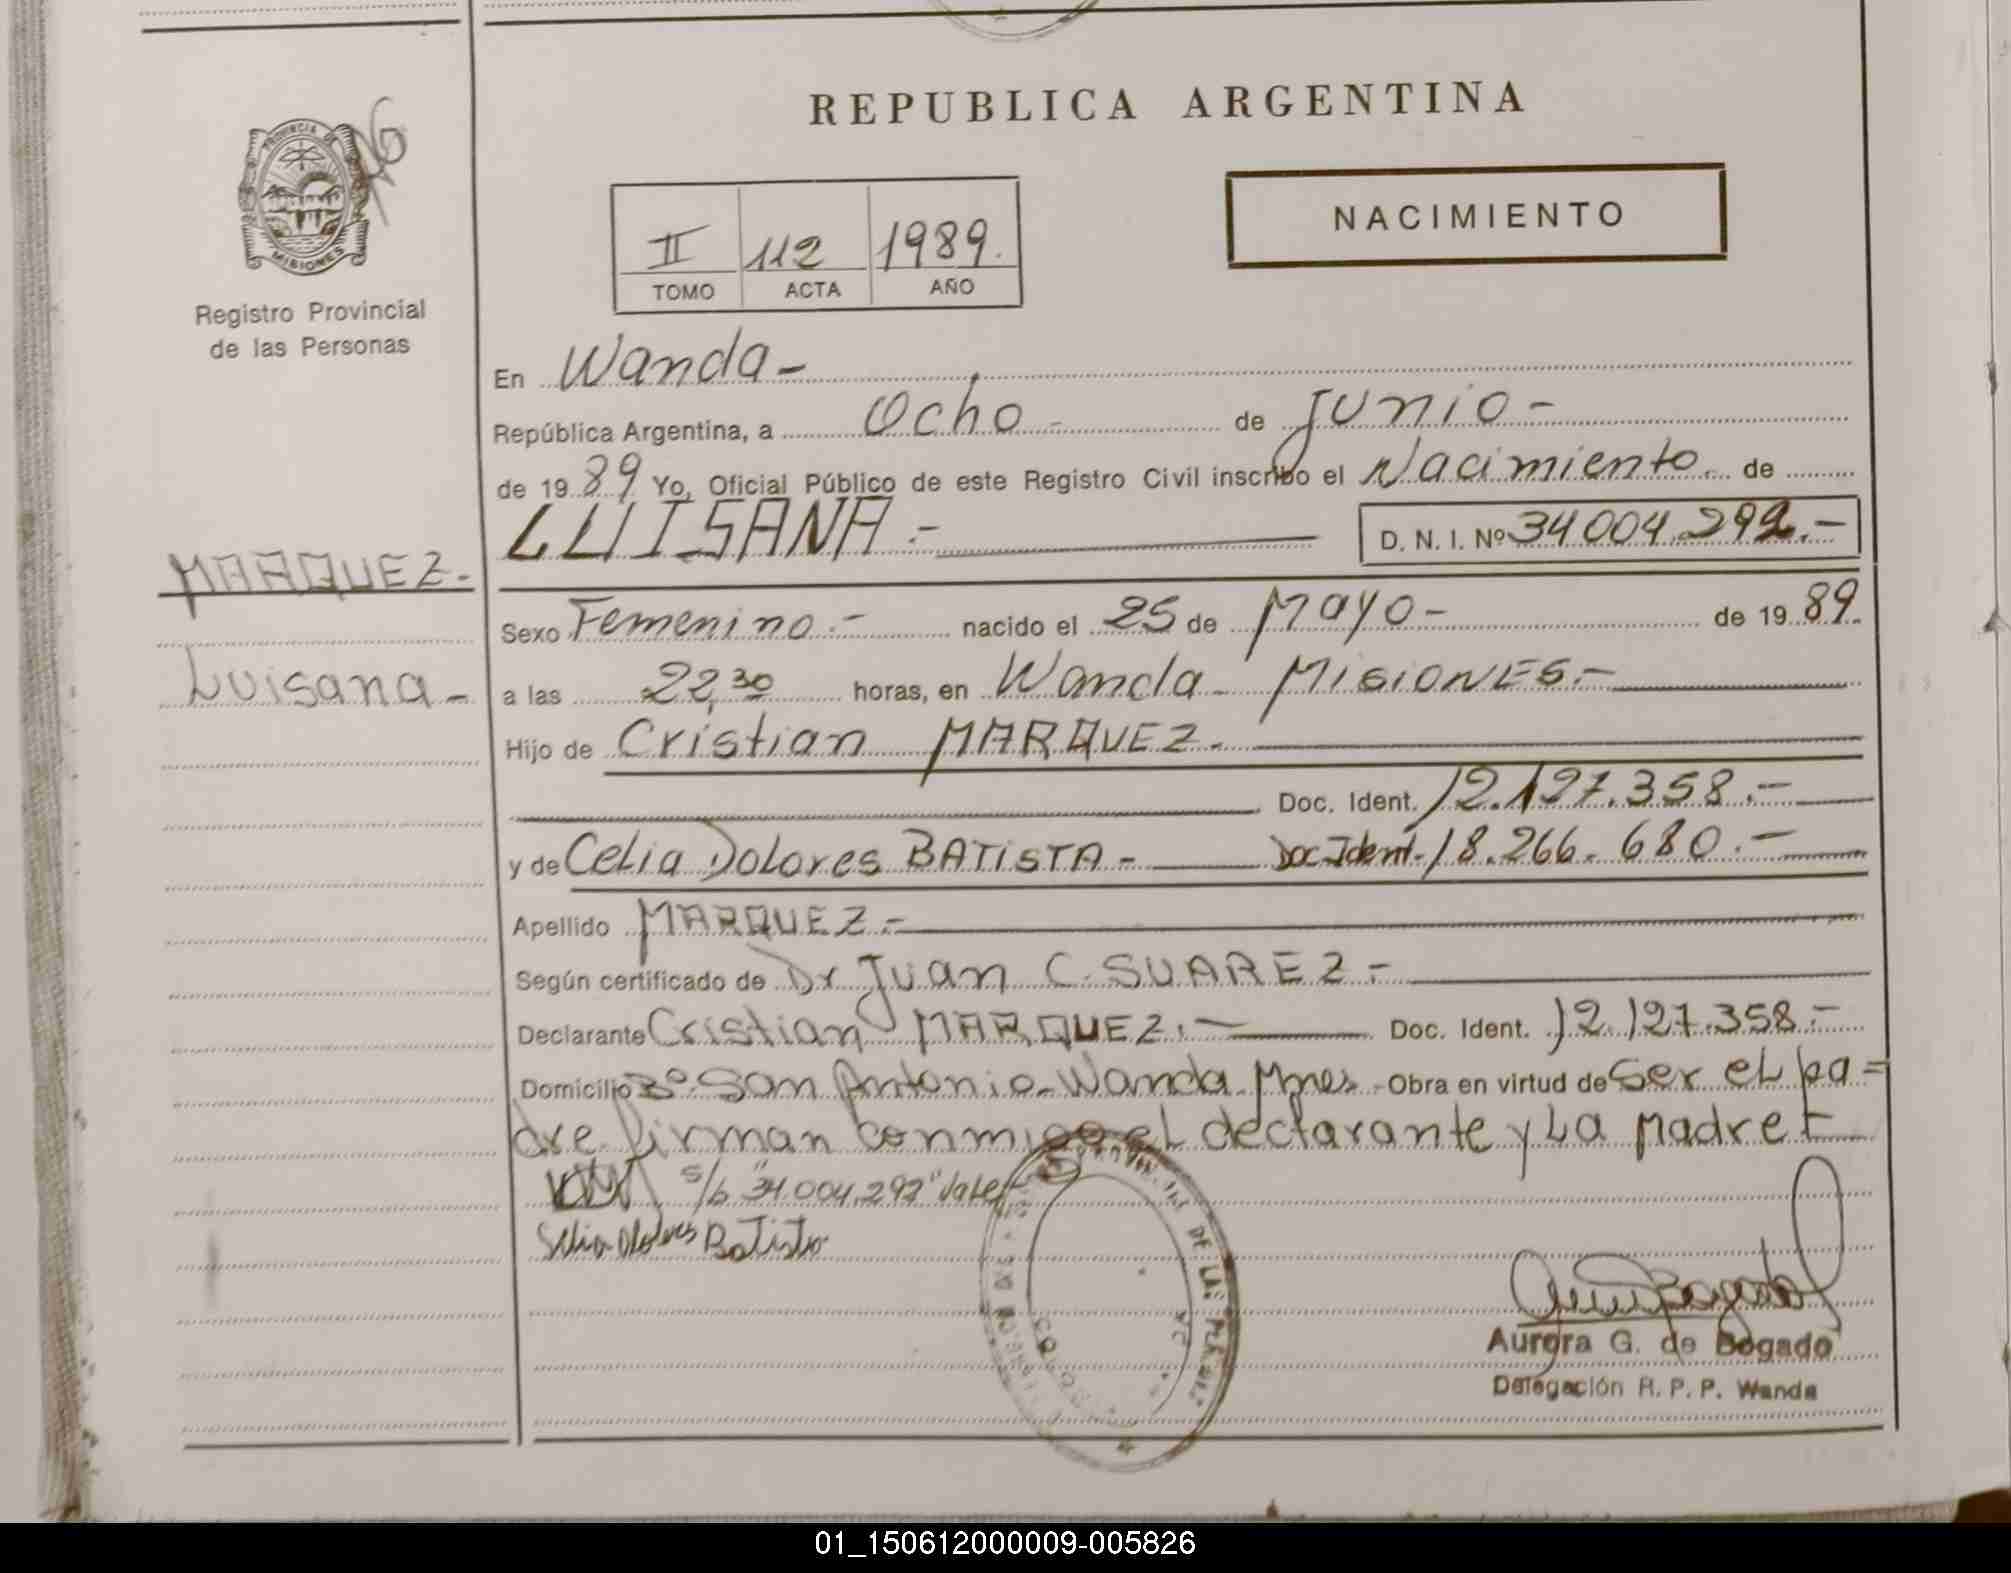 REPUBLICA ARGENTINA
PROVINCIA DE
MISIONES
Registro Provincial
de las Personas
II 112 1989.
TOMO ACTA AÑO
NACIMIENTO
En Wanda-
República Argentina, a Ocho- de Junio-
de 1989 Yo, Oficial Público de este Registro Civil inscribo el Nacimiento de
LUISANA.- D. N. I. Nº 34 004.292.-
MARQUEZ.-
Luisana-
Sexo Femenino.- nacido el 25 de Mayo- de 1989.
a las 22,30 horas, en Wanda- MISIONES.-
Hijo de Cristian MARQUEZ.
Doc. Ident. 12.127.358.-
y de Celia Dolores BATISTA- Doc Ident. 18.266.680.-
Apellido MARQUEZ.-
Según certificado de Dr Juan C. SUAREZ.-
Declarante Cristian MARQUEZ.- Doc. Ident. 12.127.358.-
Domicilio Bº San Antonio-Wanda-Mnes.- Obra en virtud de ser el pa=
dre firman conmigo el declarante y La Madre-
s/b "34.004.292" Vale
Selia Dolores Batista
DE LAS
Aurora G. de Bogado
Delegación R. P. P. Wanda
01_150612000009-005826